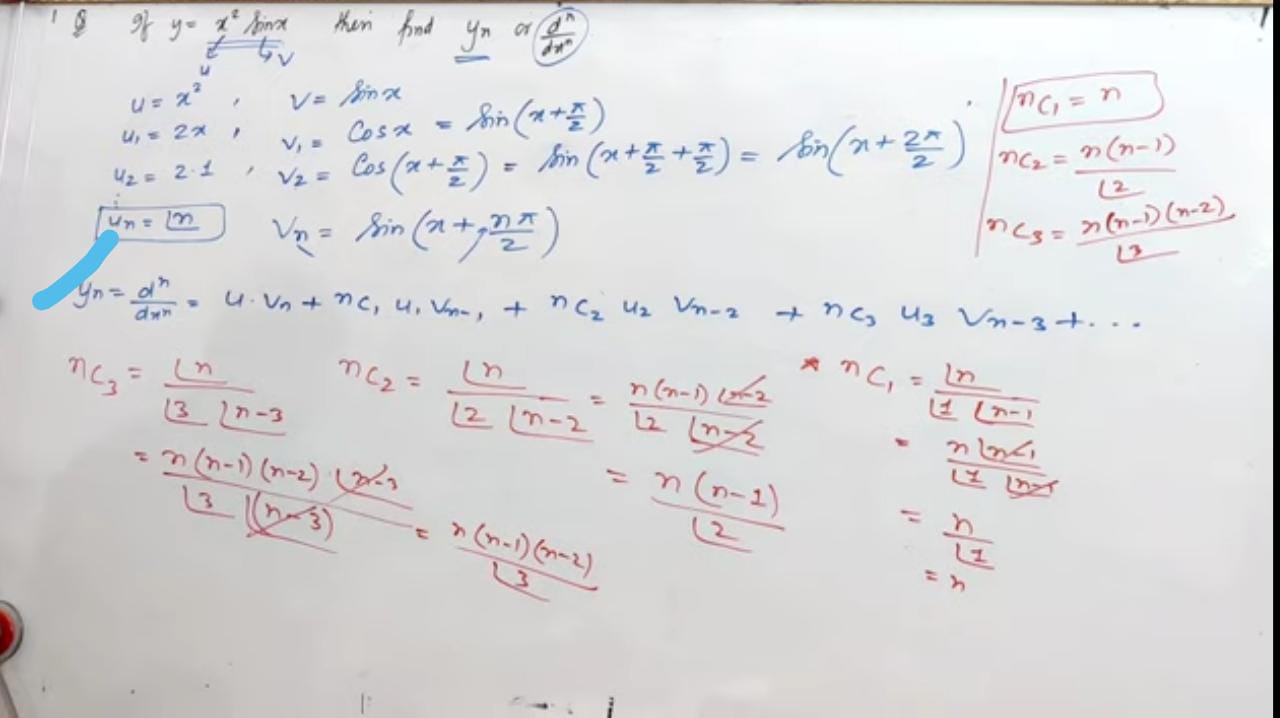 1 Q If y = x² sinx then find yn or dⁿ/dxⁿ
u v
u = x² , v = sinx
u₁ = 2x , v₁ = Cosx = sin(x+π/2)
u₂ = 2·1 , v₂ = Cos(x+π/2) = sin(x+π/2+π/2) = sin(x+2π/2)
un = ⌊n Vn = sin(x+nπ/2)
nC₁ = n
nC₂ = n(n-1)/⌊2
nC₃ = n(n-1)(n-2)/⌊3
yn = dⁿ/dxⁿ = u·Vn + nC₁ u₁ Vn-1 + nC₂ u₂ Vn-2 + nC₃ u₃ Vn-3 + ...
nC₃ = ⌊n/⌊3 ⌊n-3
= n(n-1)(n-2)·⌊n-3/⌊3 ⌊(n-3) = n(n-1)(n-2)/⌊3
nC₂ = ⌊n/⌊2 ⌊n-2 = n(n-1)⌊n-2/⌊2 ⌊n-2
= n(n-1)/⌊2
* nC₁ = ⌊n/⌊1 ⌊n-1
= n⌊n-1/⌊1 ⌊n-1
= n/⌊1
= n